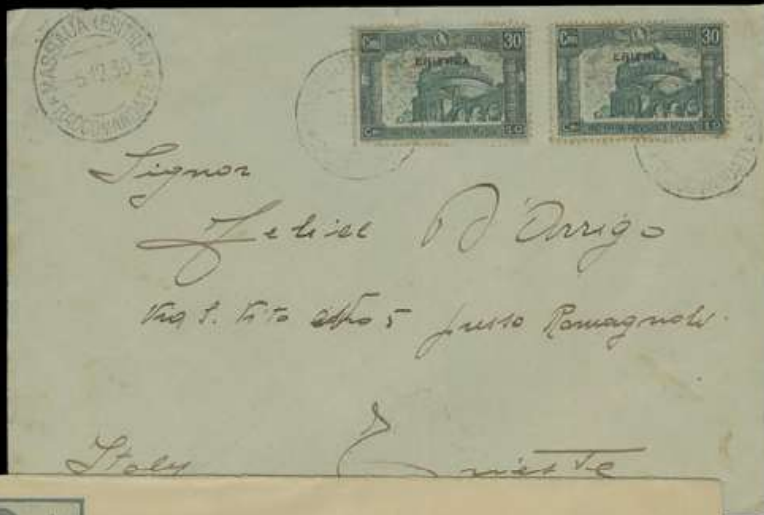 MASSAUA (ERITREA)
5.12.30
RACCOMANDATE
Cmi 30
ERITREA
Cmi 30
ERITREA
Signor
Felice D'Arrigo
Via S. Vito 5 presso Romagnoli.
Italy Trieste